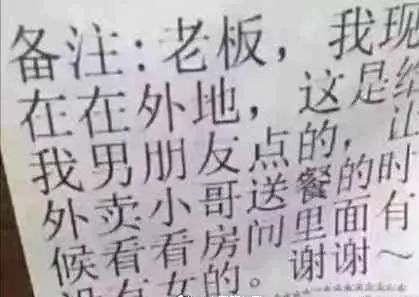 备注:老板，我现
在在外地，这是给
我男朋友点的，让
外卖小哥送餐的时
候看看房间里面有
没有女的。谢谢～